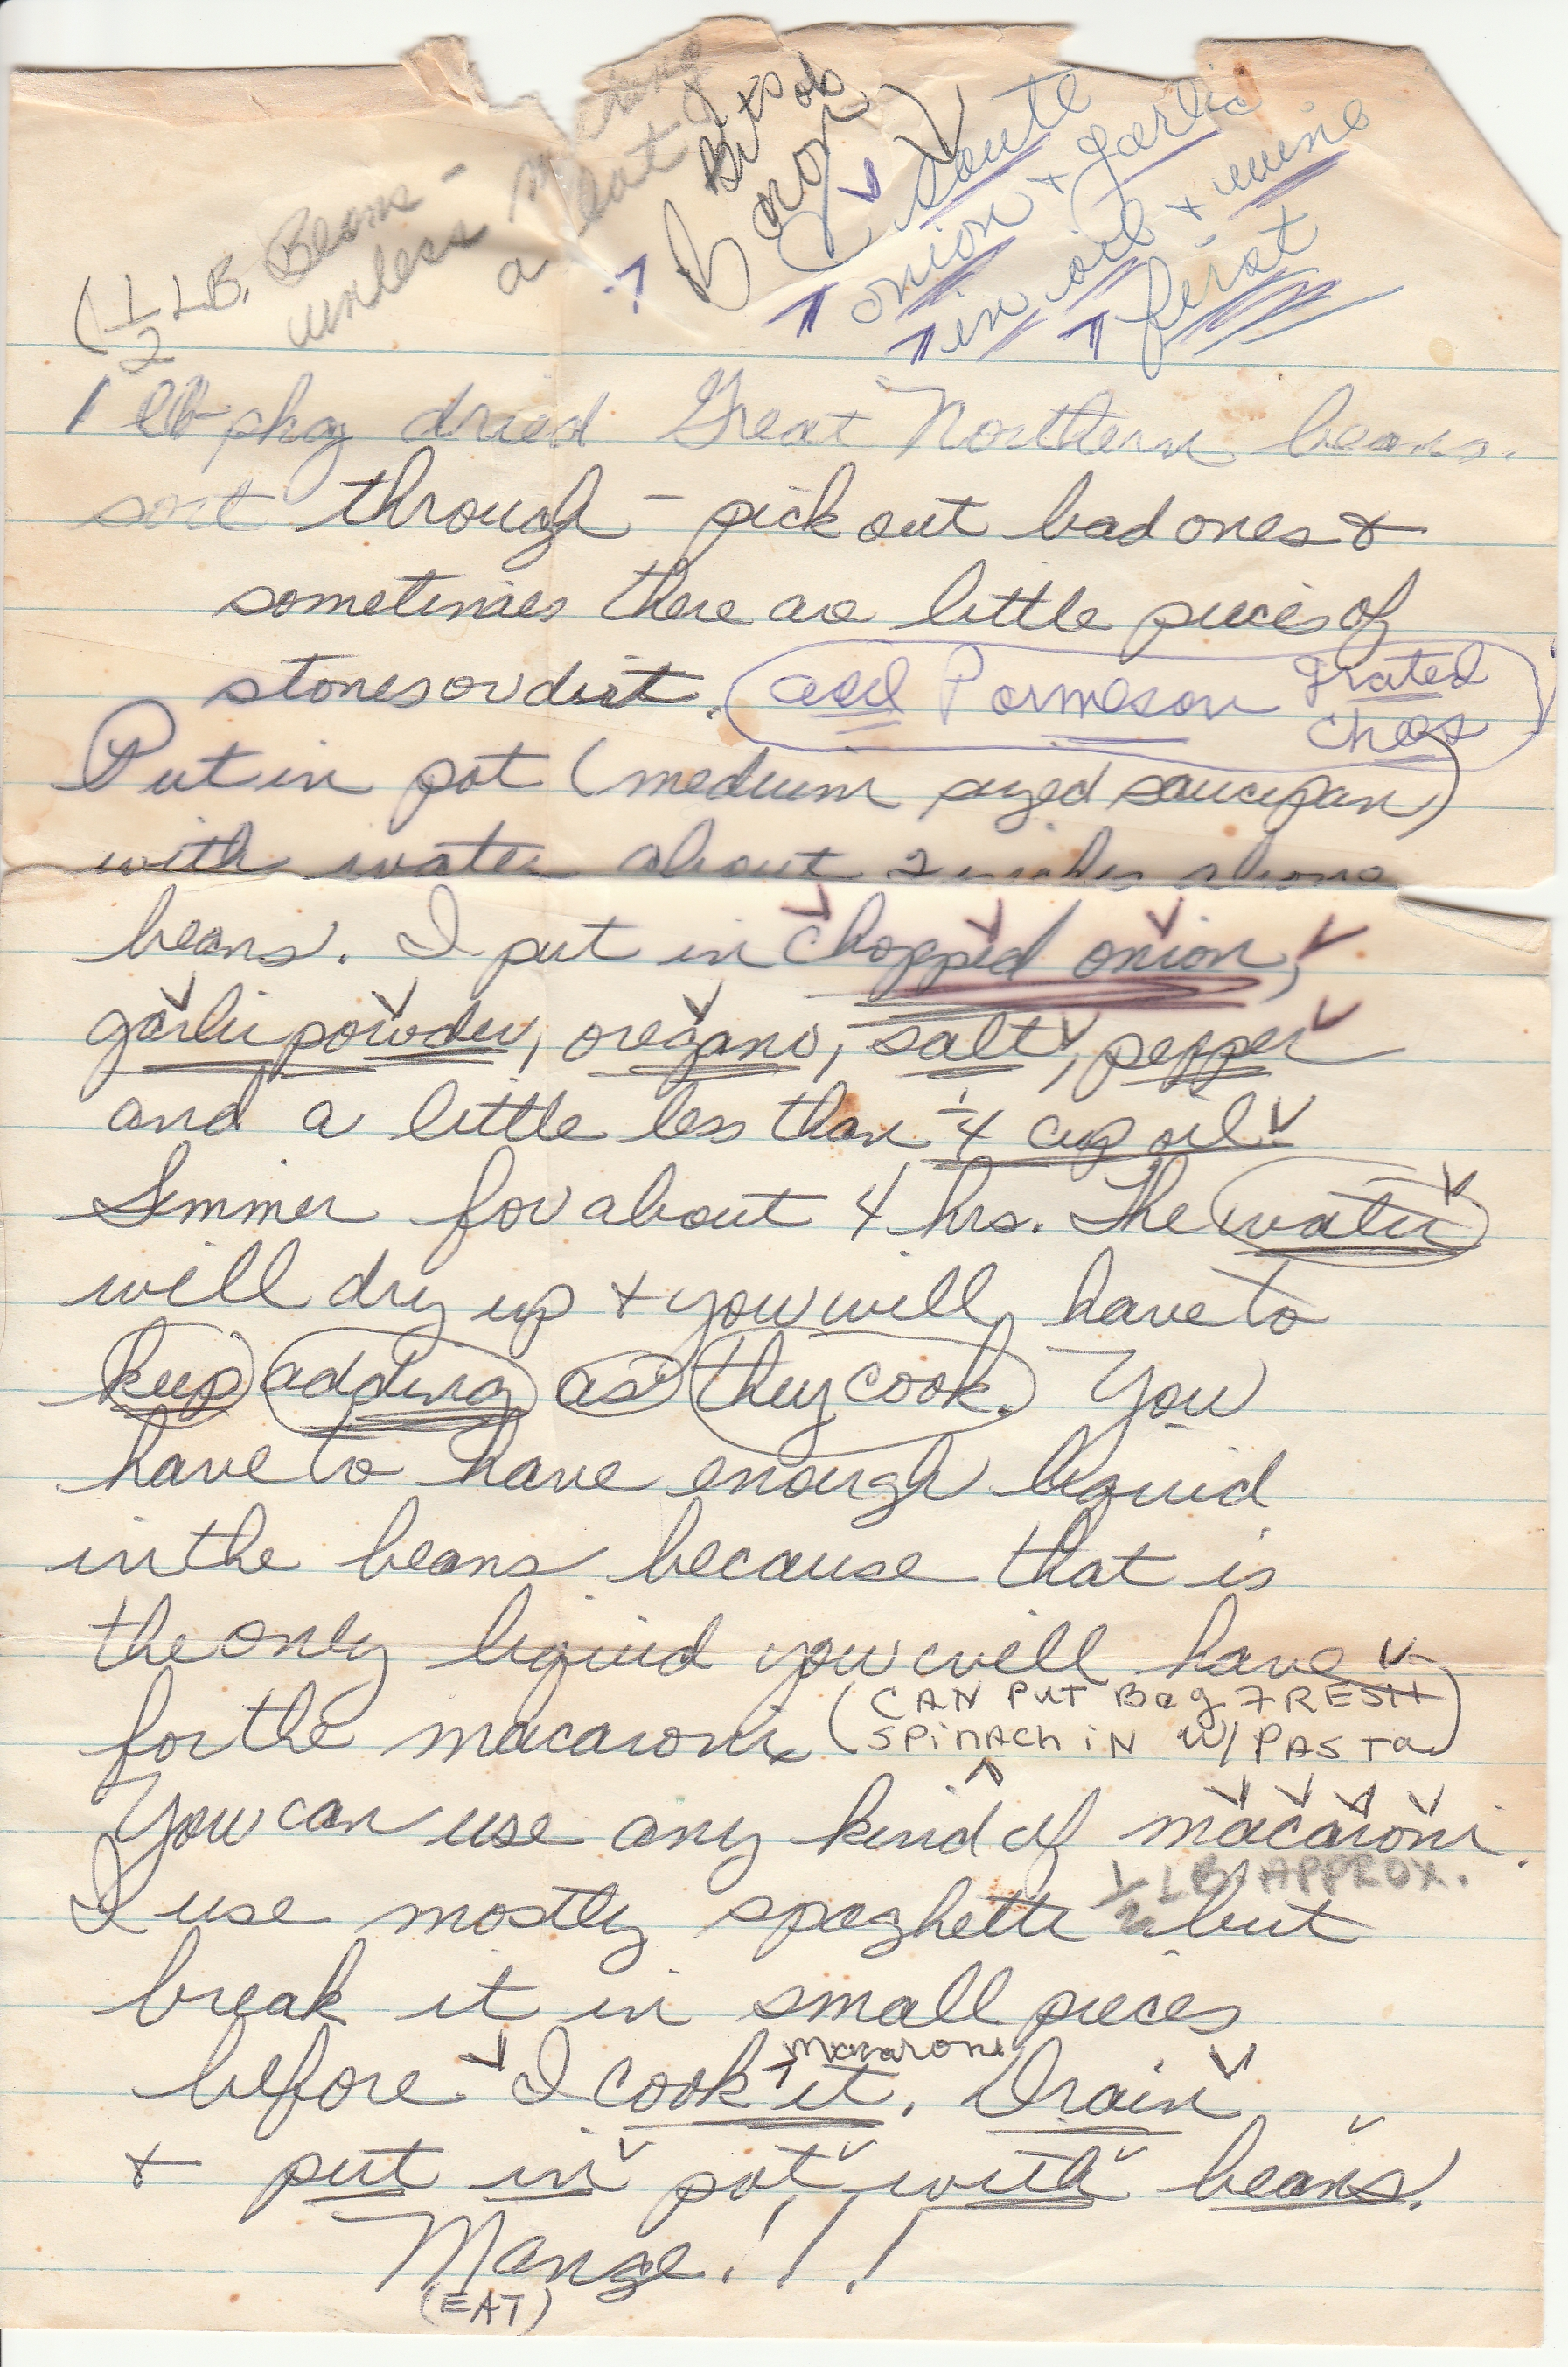 (1/2 LB. Beans -
unless making
a lot &
bits of
bacon)
saute
onion + garlic
in oil + wine
first
1 lb pkg dried Great Northern beans.
sort through - pick out bad ones &
sometimes there are little pieces of
stones or dirt. (add Parmeson grated
chees)
Put in pot (medium sized saucepan)
with water about 2 inches above
beans. I put in chopped onion,
garlic powder, oregano, salt, pepper
and a little less than 1/4 cup oil.
Simmer for about 4 hrs. The water
will dry up + you will have to
keep adding as they cook. You
have to have enough liquid
in the beans because that is
the only liquid you will have
for the macaroni. (CAN PUT Bag FRESH
SPiNACh iN W/ PASTa)
You can use any kind of macaroni.
1/2 LB. APPROX.
I use mostly spaghetti but
break it in small pieces
before I cook it. Drain
macaroni
& put in pot with beans.
Mange!!!
(EAT)